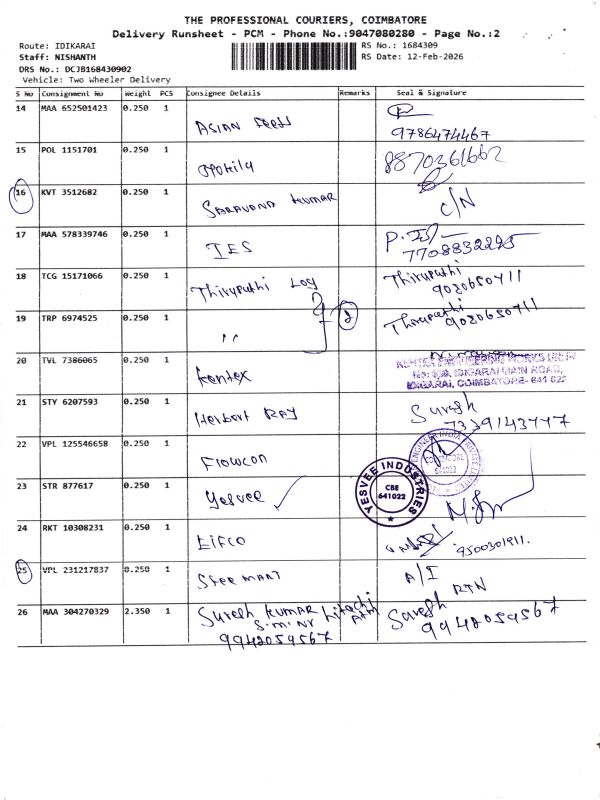 THE PROFESSIONAL COURIERS, COIMBATORE
Delivery Runsheet - PCM - Phone No.:9047080280 - Page No.:2
Route: IDIKARAI
RS No.: 1684309
Staff: NISHANTH
RS Date: 12-Feb-2026
DRS No.: DCJB168430902
Vehicle: Two Wheeler Delivery
S No Consignment No Weight PCS Consignee Details Remarks Seal & Signature
14 MAA 652501423 0.250 1 ASIAN Feeds
9786474467
15 POL 1151701 0.250 1 8870361662
16 KVT 3512682 0.250 1 SARAVANA KUMAR C/N
17 MAA 578339746 0.250 1 IES
7708832295
18 TCG 15171066 0.250 1 Thirupathi Log Thirupathi
9080650711
19 TRP 6974525 0.250 1 ,, 2 Thirupathi
9080650711
20 TVL 7386065 0.250 1 Kentex
IDIGARAI MAIN ROAD,
IDIGARAI, COIMBATORE- 641 022
21 STY 6207593 0.250 1 Herbert RAY Suresh
22 VPL 125546658 0.250 1 Flowcon
641022
23 STR 877617 0.250 1 Yesvee
YESVEE INDUSTRIES
CBE
641022
24 RKT 10308231 0.250 1 EIFCO 9500301911.
25 VPL 231217837 0.250 1 Shree MART A/I
RTN
26 MAA 304270329 2.350 1 Suresh Kumar Hitachi ATM Suresh
S.M. Nr
9942059567 9942059567